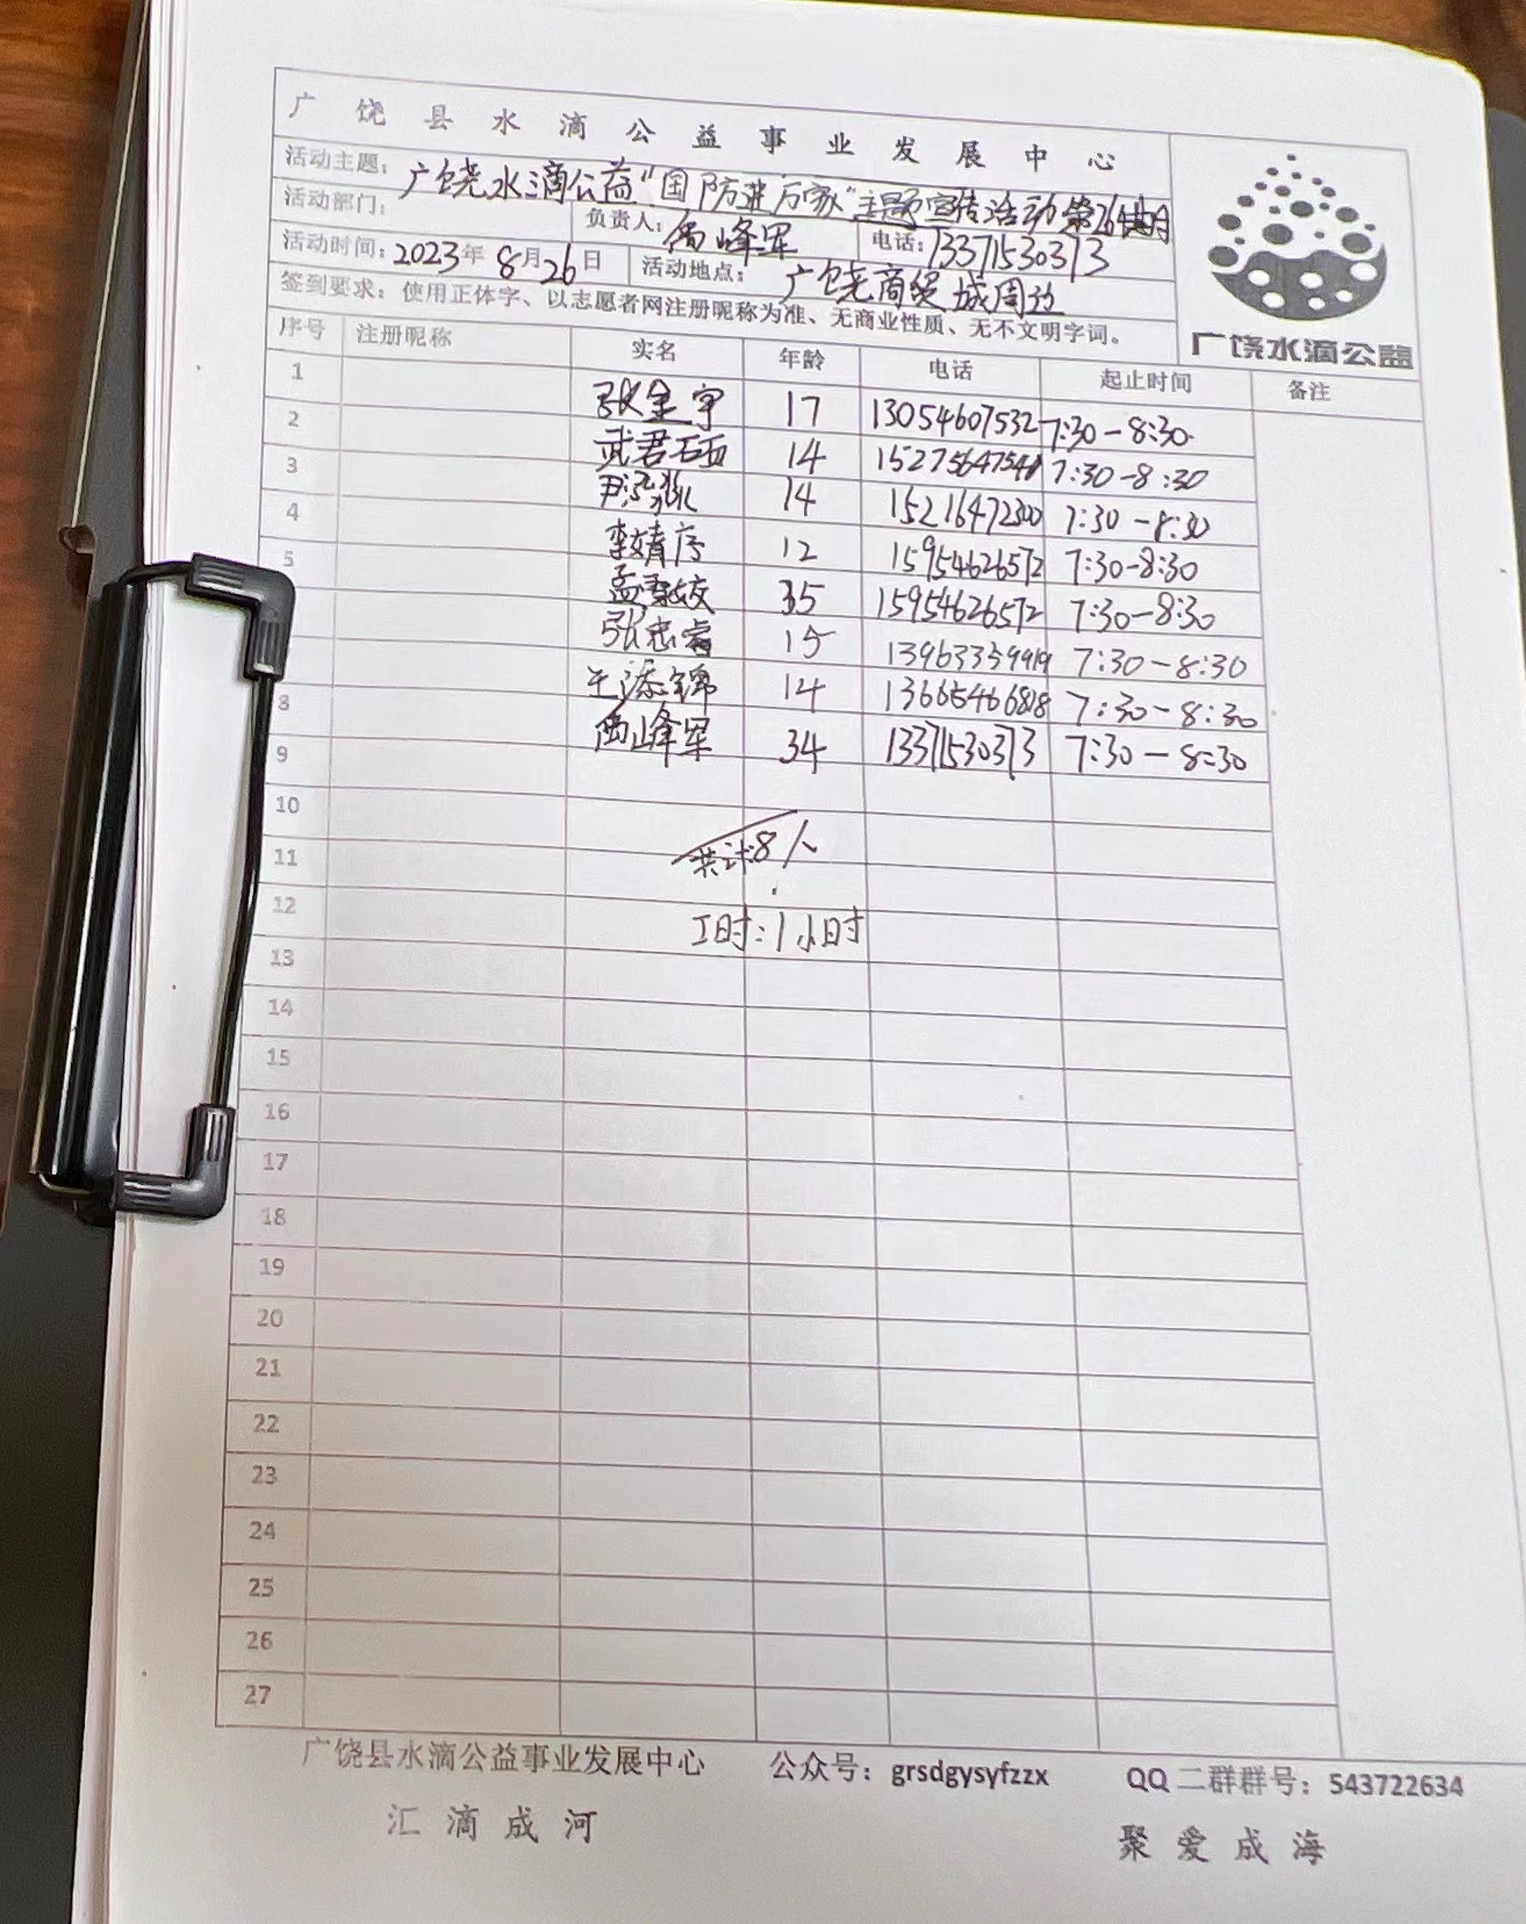 广饶县水滴公益事业发展中心
活动主题：广饶水滴公益“国防进万家”主题宣传活动第26期
活动部门： 负责人：峰军 电话：13371530373
活动时间：2023年8月26日 活动地点：广饶商贸城周边
签到要求：使用正体字、以志愿者网注册昵称为准、无商业性质、无不文明字词。
广饶水滴公益
序号 注册昵称 实名 年龄 电话 起止时间 备注
1 张金宇 17 13054607532 7:30-8:30
2 武君硕 14 7:30-8:30
3 尹 14 15216472300 7:30-8:30
4 李婧序 12 15954626572 7:30-8:30
5 孟 35 15954626572 7:30-8:30
张忠睿 15 7:30-8:30
王添锦 14 7:30-8:30
8 峰军 34 13371530373 7:30-8:30
9
10
11 共计:8人
12 工时:1小时
13
14
15
16
17
18
19
20
21
22
23
24
25
26
27
广饶县水滴公益事业发展中心 公众号：grsdgysyfzzx QQ二群群号：543722634
汇滴成河 聚爱成海